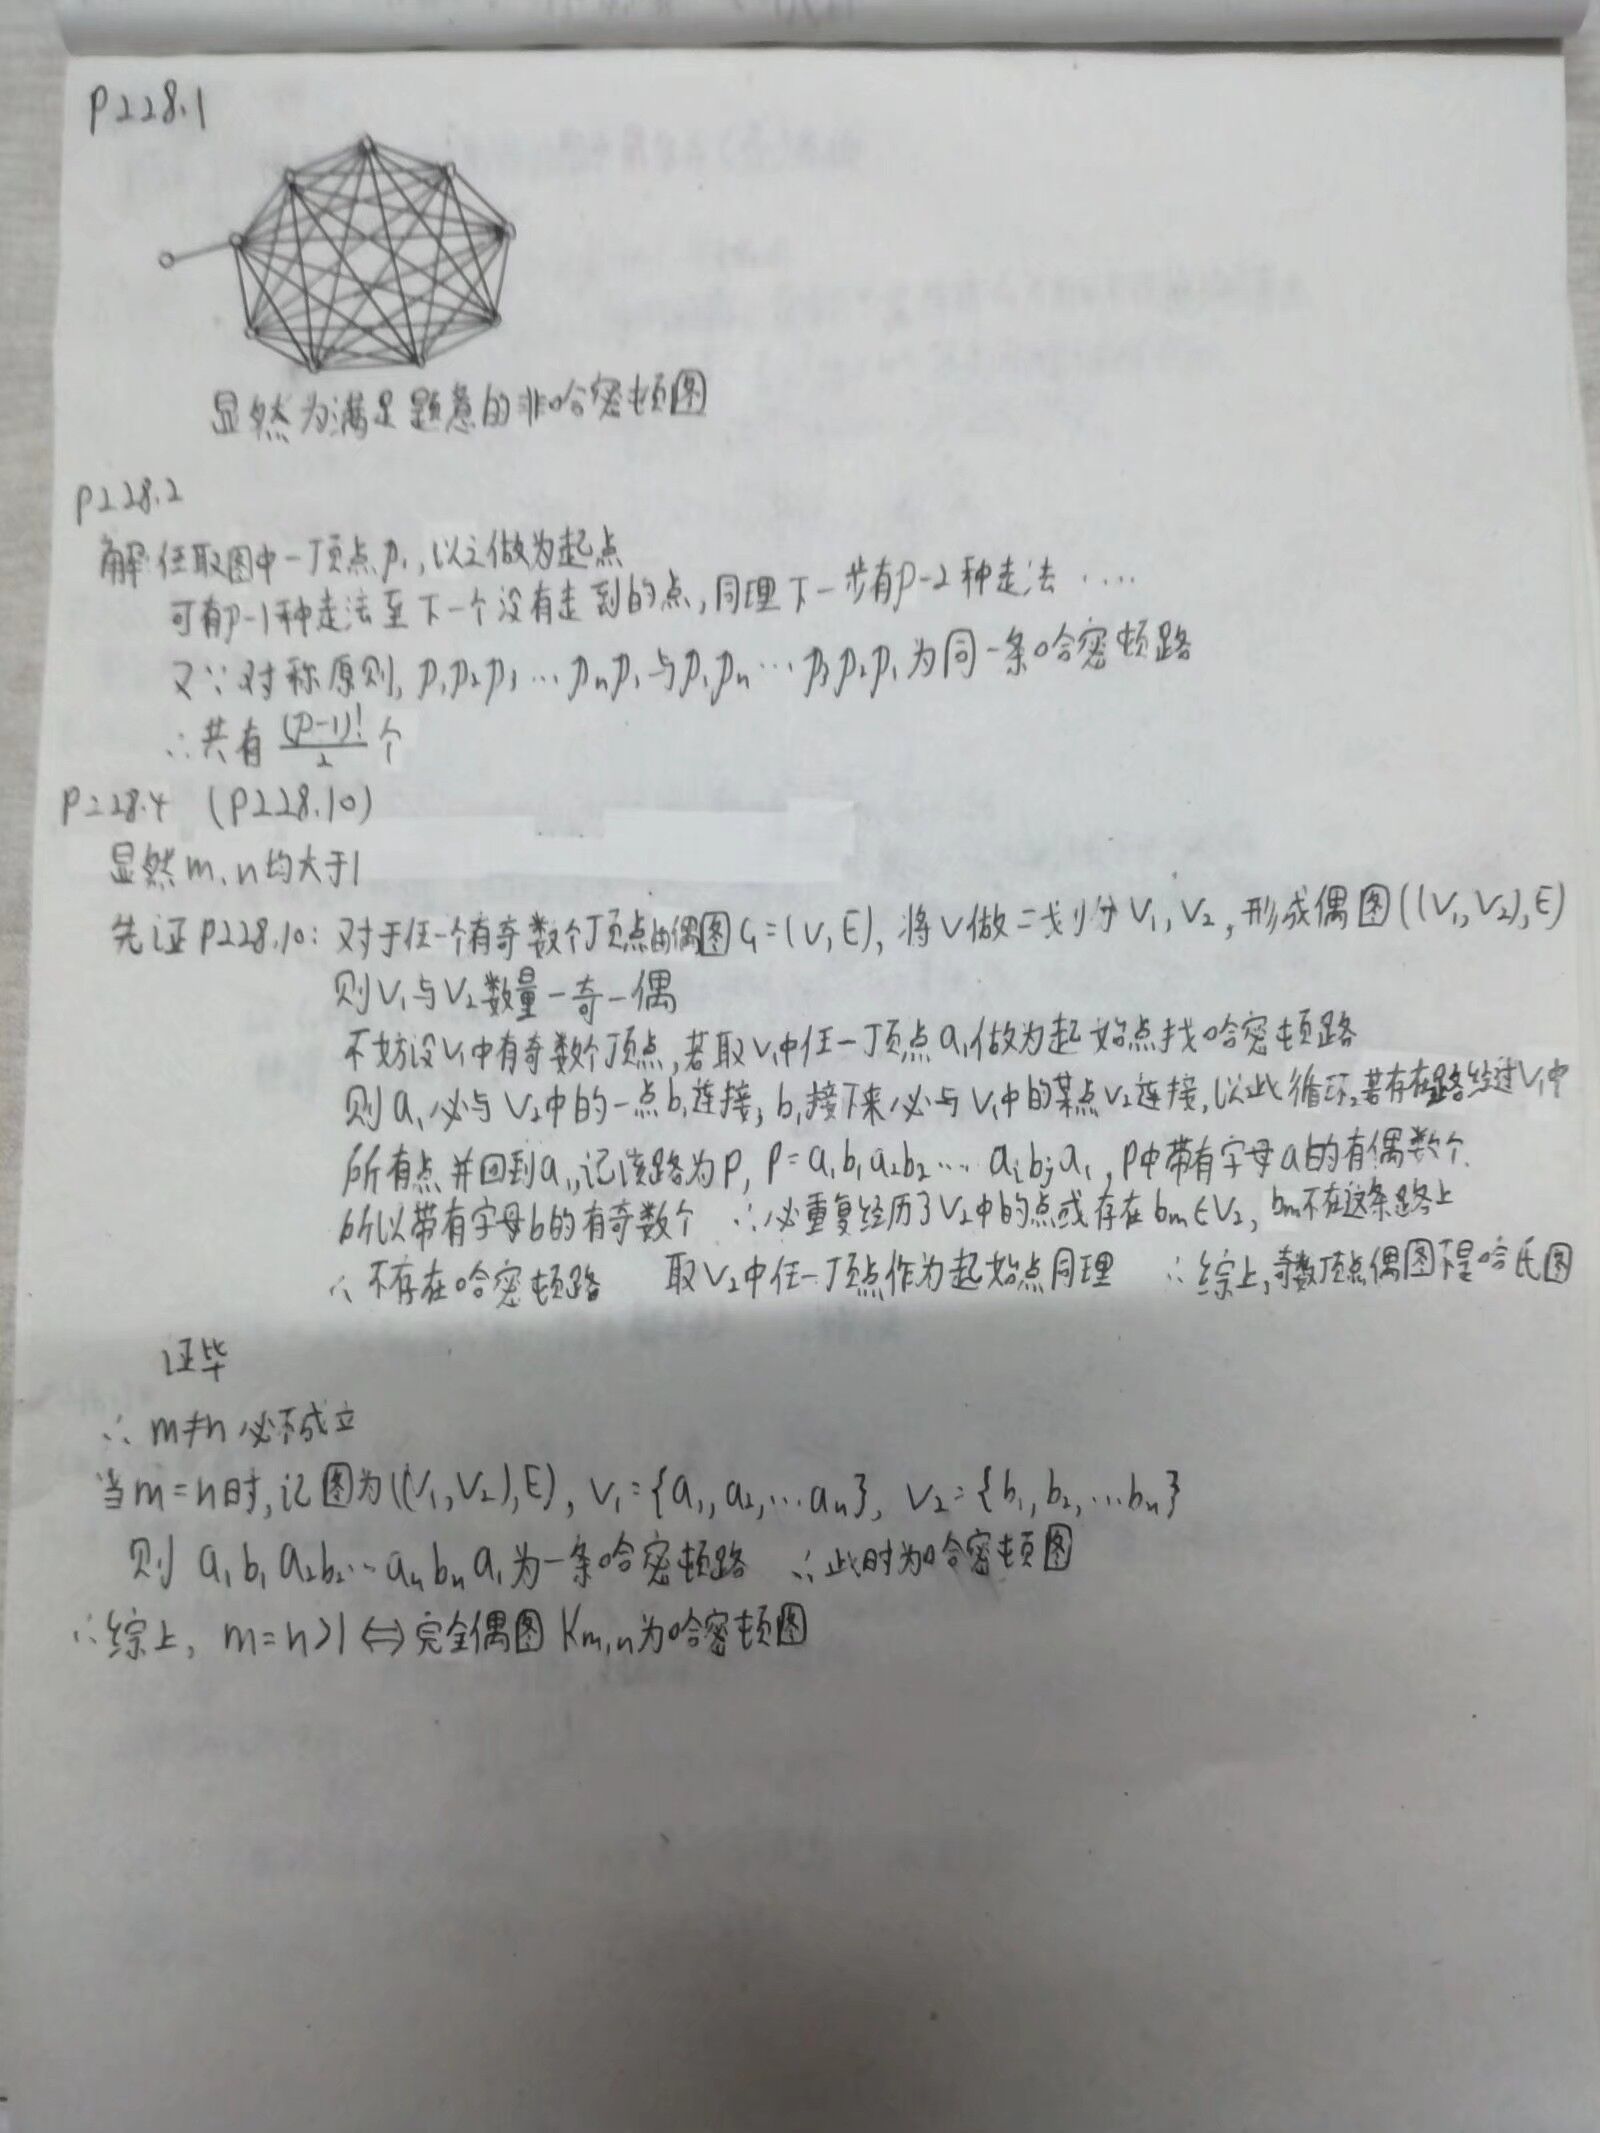 P228.1
显然为满足题意的非哈密顿图
P228.2
解:任取图中一顶点p₁,以之做为起点
可有p-1种走法至下一个没有走到的点,同理下一步有p-2种走法 ....
又∵对称原则, p₁p₂p₃…pₙp₁与p₁pₙ…p₃p₂p₁为同一条哈密顿路
∴共有 (p-1)!/2 个
P228.4 (P228.10)
显然m、n均大于1
先证P228.10: 对于任一个有奇数个顶点的偶图G=(V,E), 将V做二划分V₁,V₂, 形成偶图((V₁,V₂),E)
则V₁与V₂数量一奇一偶
不妨设V₁中有奇数个顶点,若取V₁中任一顶点a₁做为起始点找哈密顿路
则a₁必与V₂中的一点b₁连接, b₁接下来必与V₁中的某点v₂连接,以此循环,若存在路经过V₁中
所有点并回到a₁,记该路为P, P=a₁b₁a₂b₂…aᵢbⱼa₁, P中带有字母a的有偶数个
所以带有字母b的有奇数个 ∴必重复经历了V₂中的点或存在bₘ∈V₂, bₘ不在这条路上
∴不存在哈密顿路 取V₂中任一顶点作为起始点同理 ∴综上,奇数顶点偶图不是哈氏图
证毕
∴m≠n必不成立
当m=n时,记图为((V₁,V₂),E), V₁={a₁,a₂,…aₙ}, V₂={b₁,b₂,…bₙ}
则 a₁b₁a₂b₂…aₙbₙa₁为一条哈密顿路 ∴此时为哈密顿图
∴综上, m=n>1⇔完全偶图Kₘ,ₙ为哈密顿图